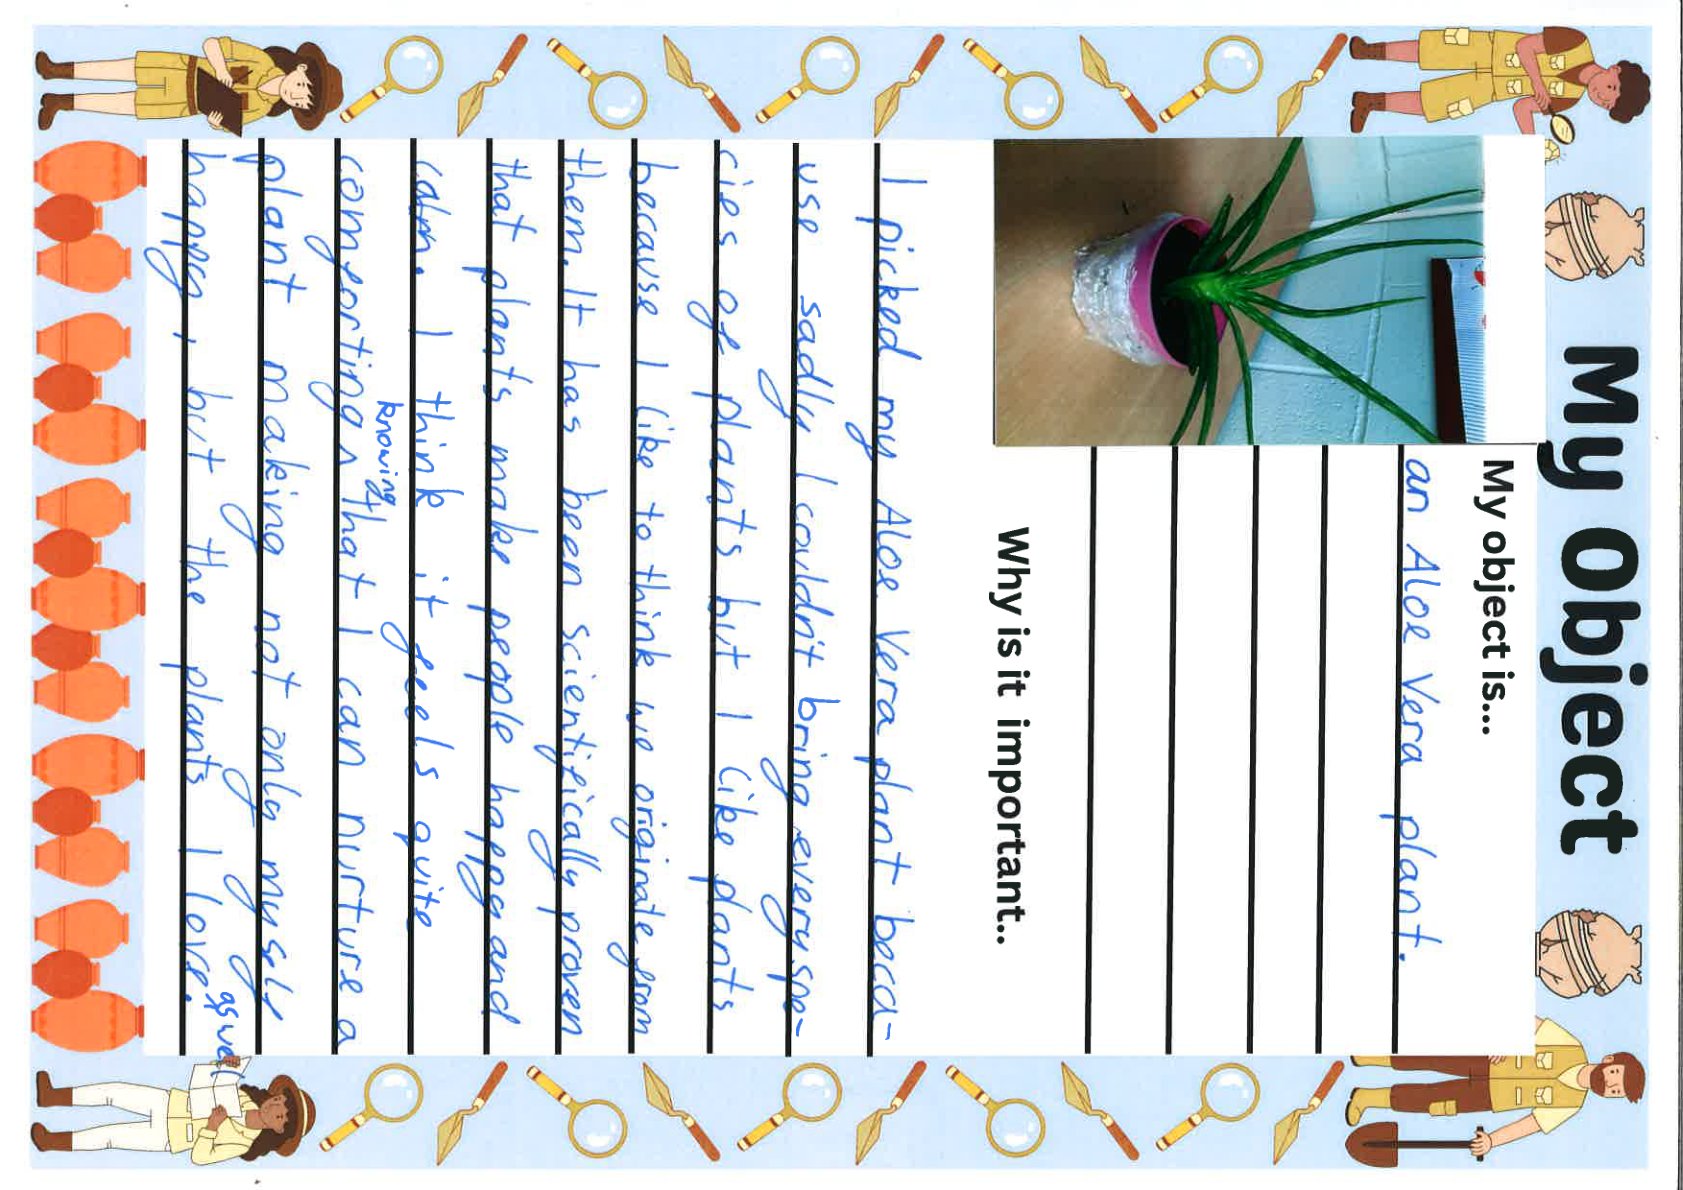 My Object
My object is...
an Aloe Vera plant.
Why is it important..
I picked my Aloe Vera plant beca-
use sadly I couldn't bring every spe-
cies of plants but I like plants
because I like to think we originate from
them. It has been scientifically proven
that plants make people happy and
calm. I think it feels quite
knowing
comforting ^ that I can nurture a
plant making not only myself
as well
happy, but the plants I love.